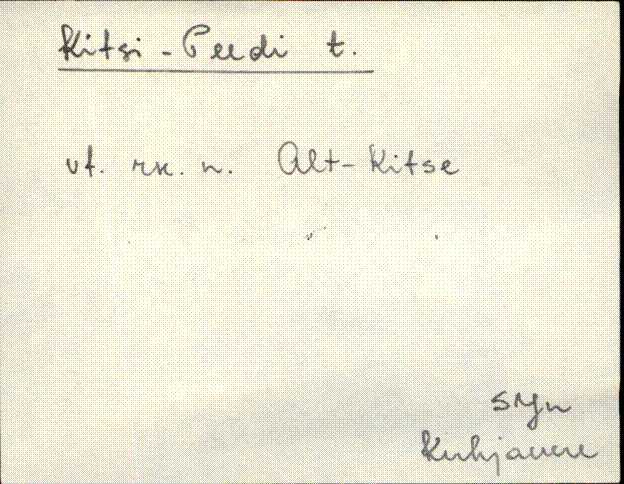 Kitsi-Peedi t.
vt. rk. n. Alt-Kitse
SJn
Kuhjavere